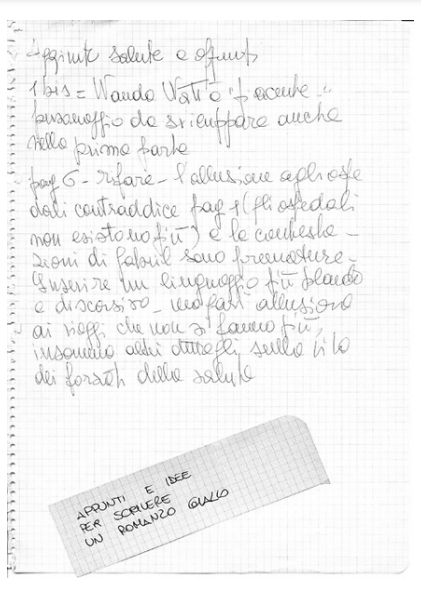 Aggiunte salute e
1 bis = Wanda Watt è "
personaggio da sviluppare anche
nella prima parte
pag 6 - rifare - l'allusione agli ospe
dali contraddice pag 1 (gli ospedali
non esistono più) e le contesta-
zioni di Gabriel sono premature -
Inserire un linguaggio più blando
e discorsivo - magari allusione
ai viaggi che non si fanno più,
insomma altri dettagli sulla vita
dei forzati della salute
APPUNTI E IDEE
PER SCRIVERE
UN ROMANZO GIALLO